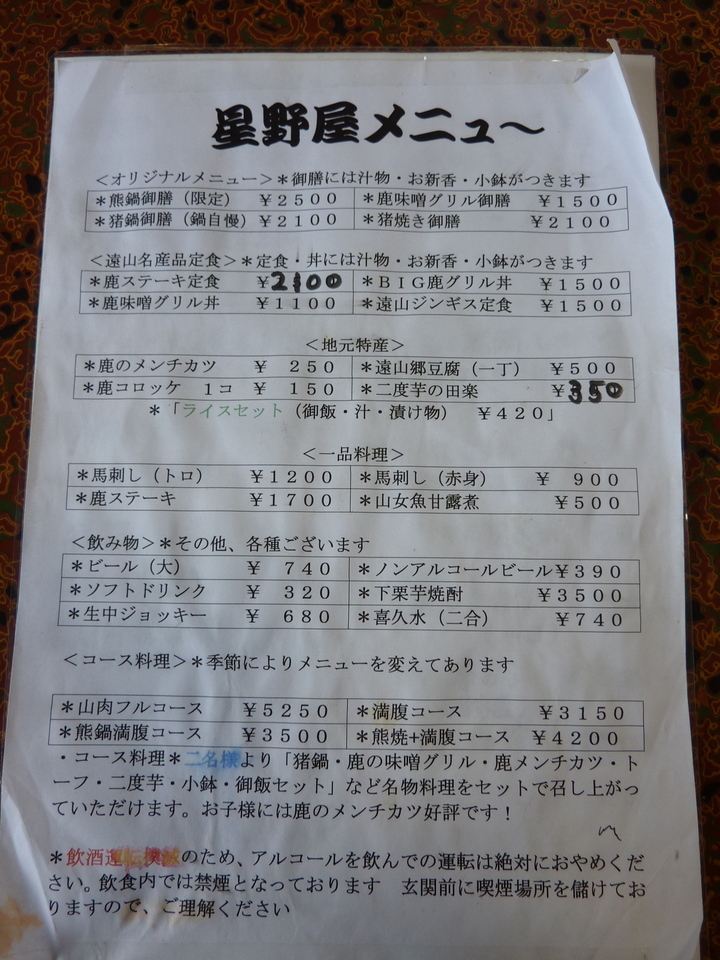 星野屋メニュ〜
＜オリジナルメニュー＞＊御膳には汁物・お新香・小鉢がつきます
＊熊鍋御膳（限定） ￥２５００ ＊鹿味噌グリル御膳 ￥１５００
＊猪鍋御膳（鍋自慢） ￥２１００ ＊猪焼き御膳 ￥２１００
＜遠山名産品定食＞＊定食・丼には汁物・お新香・小鉢がつきます
＊鹿ステーキ定食 ￥2100 ＊ＢＩＧ鹿グリル丼 ￥１５００
＊鹿味噌グリル丼 ￥１１００ ＊遠山ジンギス定食 ￥１５００
＜地元特産＞
＊鹿のメンチカツ ￥ ２５０ ＊遠山郷豆腐（一丁） ￥５００
＊鹿コロッケ １コ ￥ １５０ ＊二度芋の田楽 ￥350
＊「ライスセット（御飯・汁・漬け物） ￥４２０」
＜一品料理＞
＊馬刺し（トロ） ￥１２００ ＊馬刺し（赤身） ￥ ９００
＊鹿ステーキ ￥１７００ ＊山女魚甘露煮 ￥５００
＜飲み物＞＊その他、各種ございます
＊ビール（大） ￥ ７４０ ＊ノンアルコールビール￥３９０
＊ソフトドリンク ￥ ３２０ ＊下栗芋焼酎 ￥３５００
＊生中ジョッキー ￥ ６８０ ＊喜久水（二合） ￥７４０
＜コース料理＞＊季節によりメニューを変えてあります
＊山肉フルコース ￥５２５０ ＊満腹コース ￥３１５０
＊熊鍋満腹コース ￥３５００ ＊熊焼+満腹コース ￥４２００
・コース料理＊二名様より「猪鍋・鹿の味噌グリル・鹿メンチカツ・ト
ーフ・二度芋・小鉢・御飯セット」など名物料理をセットで召し上がっ
ていただけます。お子様には鹿のメンチカツ好評です！
＊飲酒運転撲滅のため、アルコールを飲んでの運転は絶対におやめくだ
さい。飲食内では禁煙となっております 玄関前に喫煙場所を儲けてお
りますので、ご理解ください